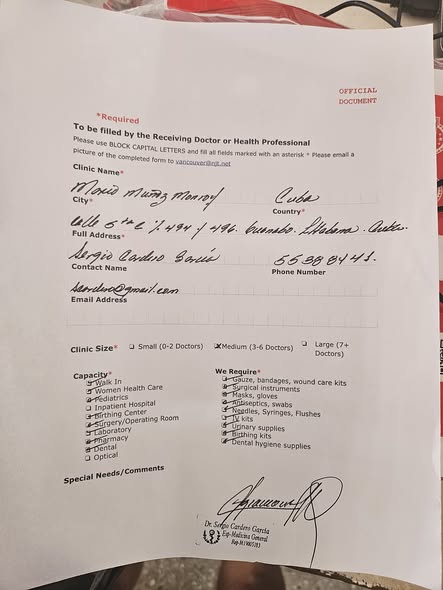 OFFICIAL
DOCUMENT
*Required
To be filled by the Receiving Doctor or Health Professional
Please use BLOCK CAPITAL LETTERS and fill all fields marked with an asterisk * Please email a
picture of the completed form to vancouver@njt.net
Clinic Name*
Mario Muñoz Monroy Cuba
City* Country*
Calle 5ta C % 494 y 496. Guanabo. LHabana. Cuba.
Full Address*
Sergio Cardero García 55388441.
Contact Name Phone Number
scardero@gmail.com
Email Address
Clinic Size* Small (0-2 Doctors) Medium (3-6 Doctors) Large (7+
Doctors)
Capacity*
Walk In
Women Health Care
Pediatrics
Inpatient Hospital
Birthing Center
Surgery/Operating Room
Laboratory
Pharmacy
Dental
Optical
We Require*
Gauze, bandages, wound care kits
Surgical instruments
Masks, gloves
Antiseptics, swabs
Needles, Syringes, Flushes
IV kits
Urinary supplies
Birthing kits
Dental hygiene supplies
Special Needs/Comments
Dr. Sergio Cardero García
Esp. Medicina General